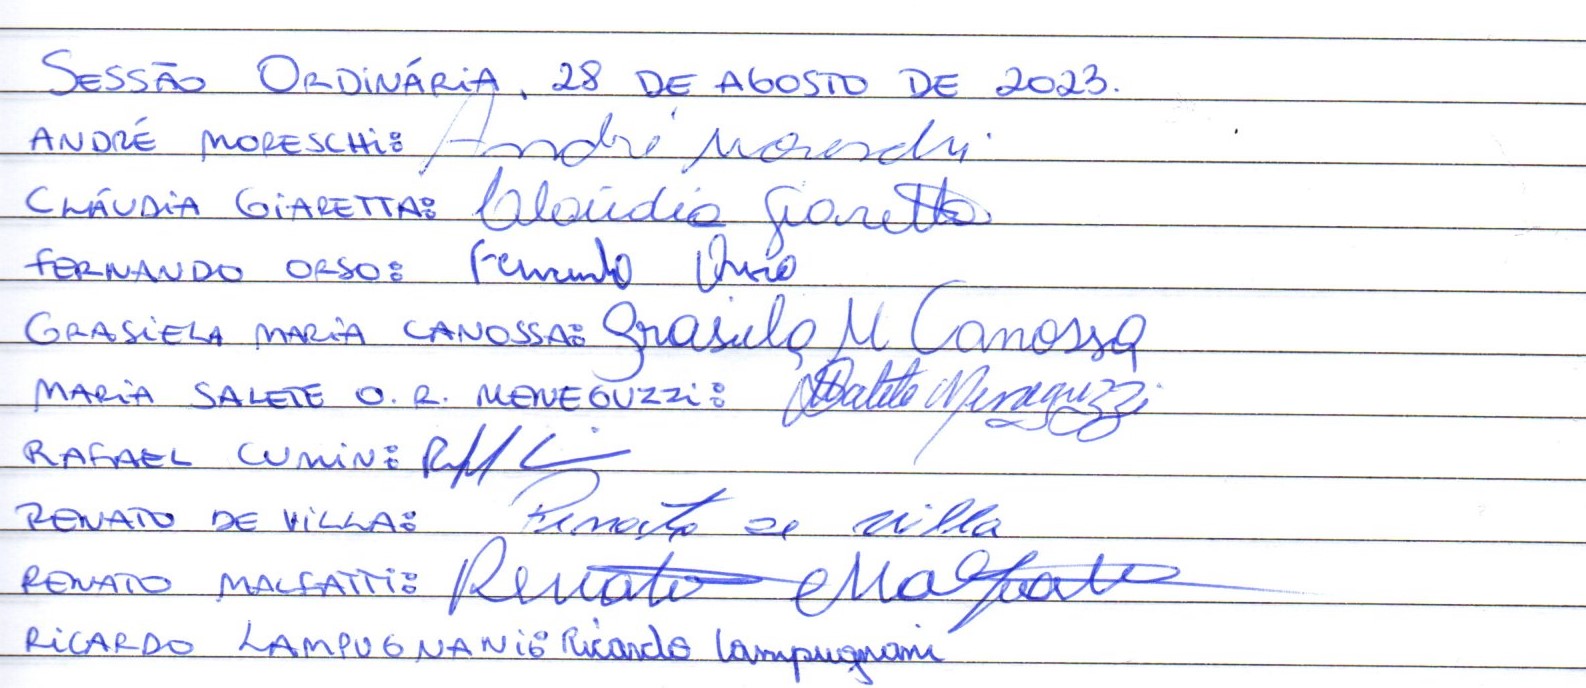 SESSÃO ORDINÁRIA, 28 DE AGOSTO DE 2023.
ANDRÉ MORESCHI: André Moreschi
CLÁUDIA GIARETTA: Claúdia Giaretta
FERNANDO ORSO: Fernando Orso
GRASIELA MARIA CANOSSA: Grasiela M Canossa
MARIA SALETE O. R. MENEGUZZI: MSalete Meneguzzi
RAFAEL CUMIN:
RENATO DE VILLA: Renato de villa
RENATO MALFATTI: Renato Malfatti
RICARDO LAMPUGNANI: Ricardo Lampugnani